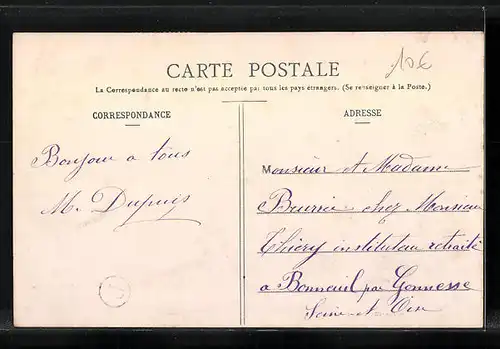 10€
CARTE POSTALE
La Correspondance au recto n'est pas acceptée par tous les pays étrangers. (Se renseigner à la Poste.)
CORRESPONDANCE
ADRESSE
Bonjour a tous
M. Dupuis
Monsieur et Madame
chez Monsieur
Thiery instituteur retraité
a Bonneuil par Gonnesse
Seine et Oise